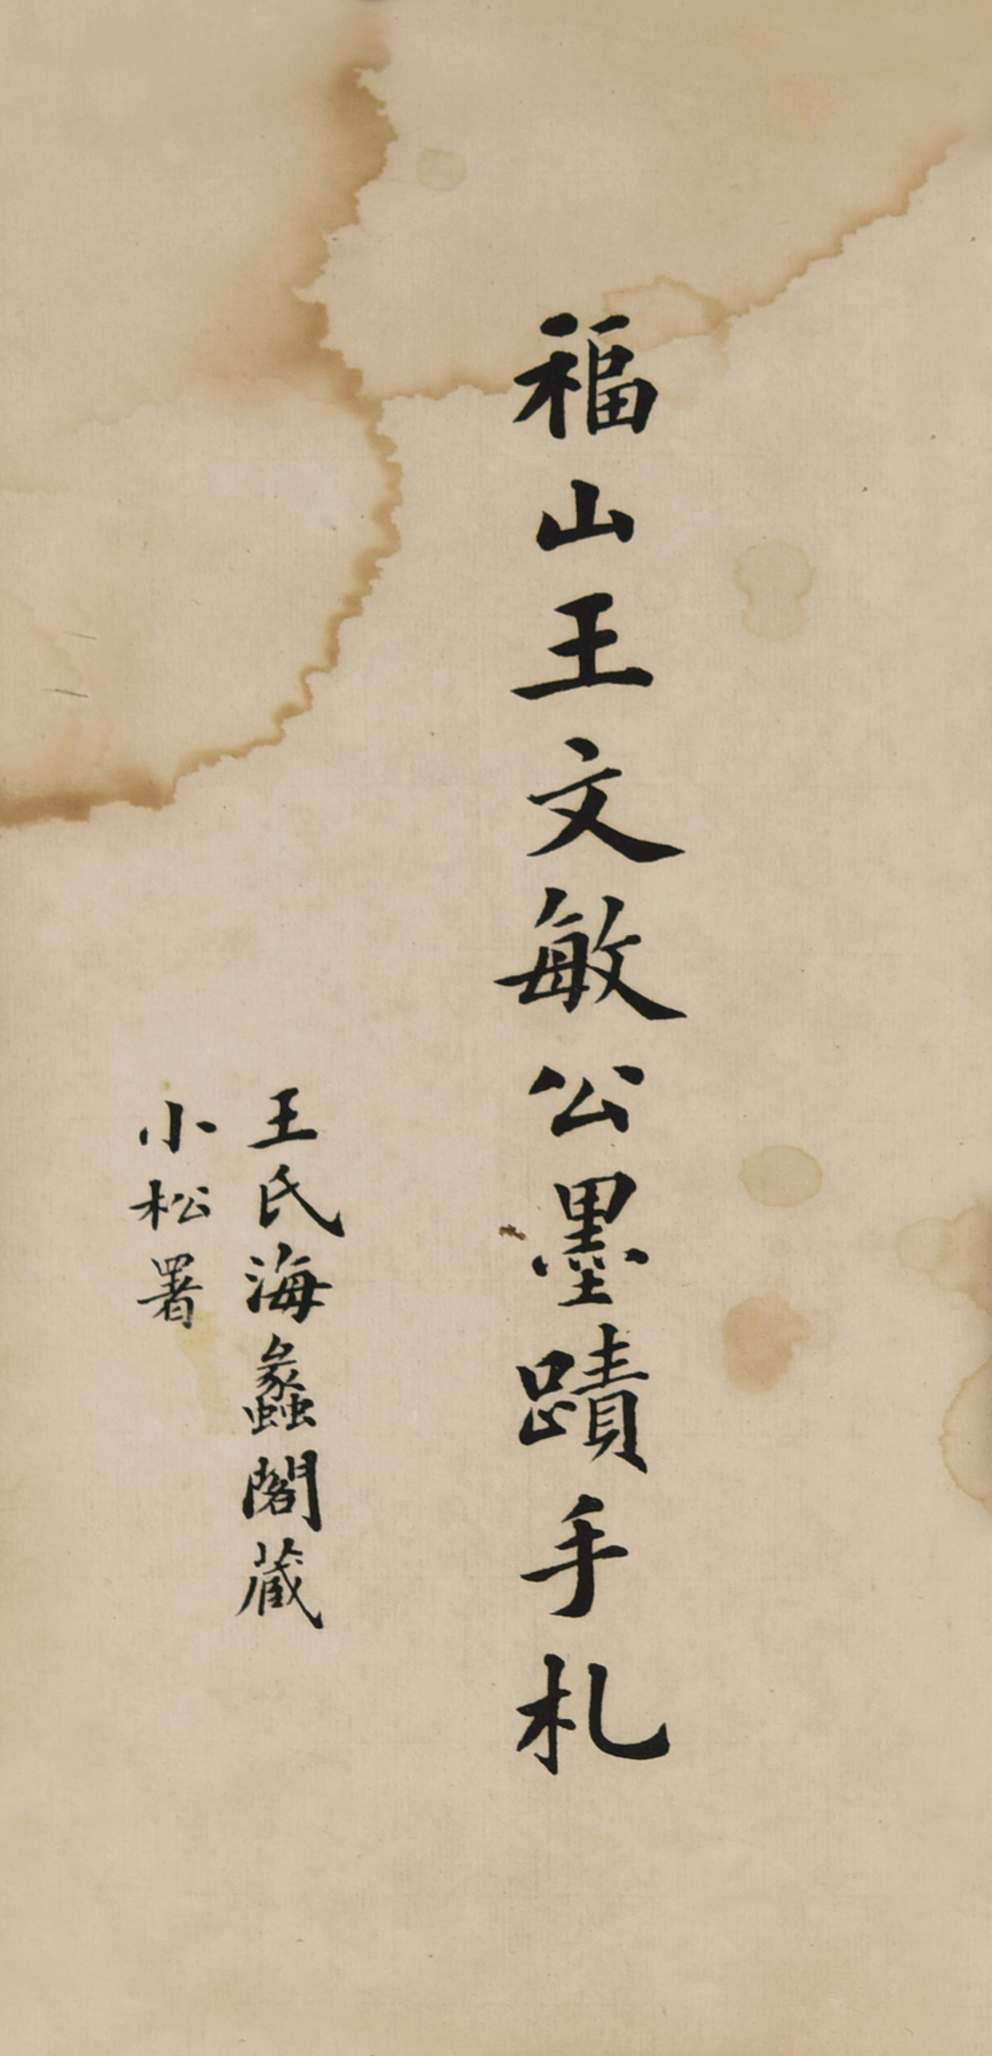 福山王文敏公墨蹟手札
王氏海蠡閣藏
小松署